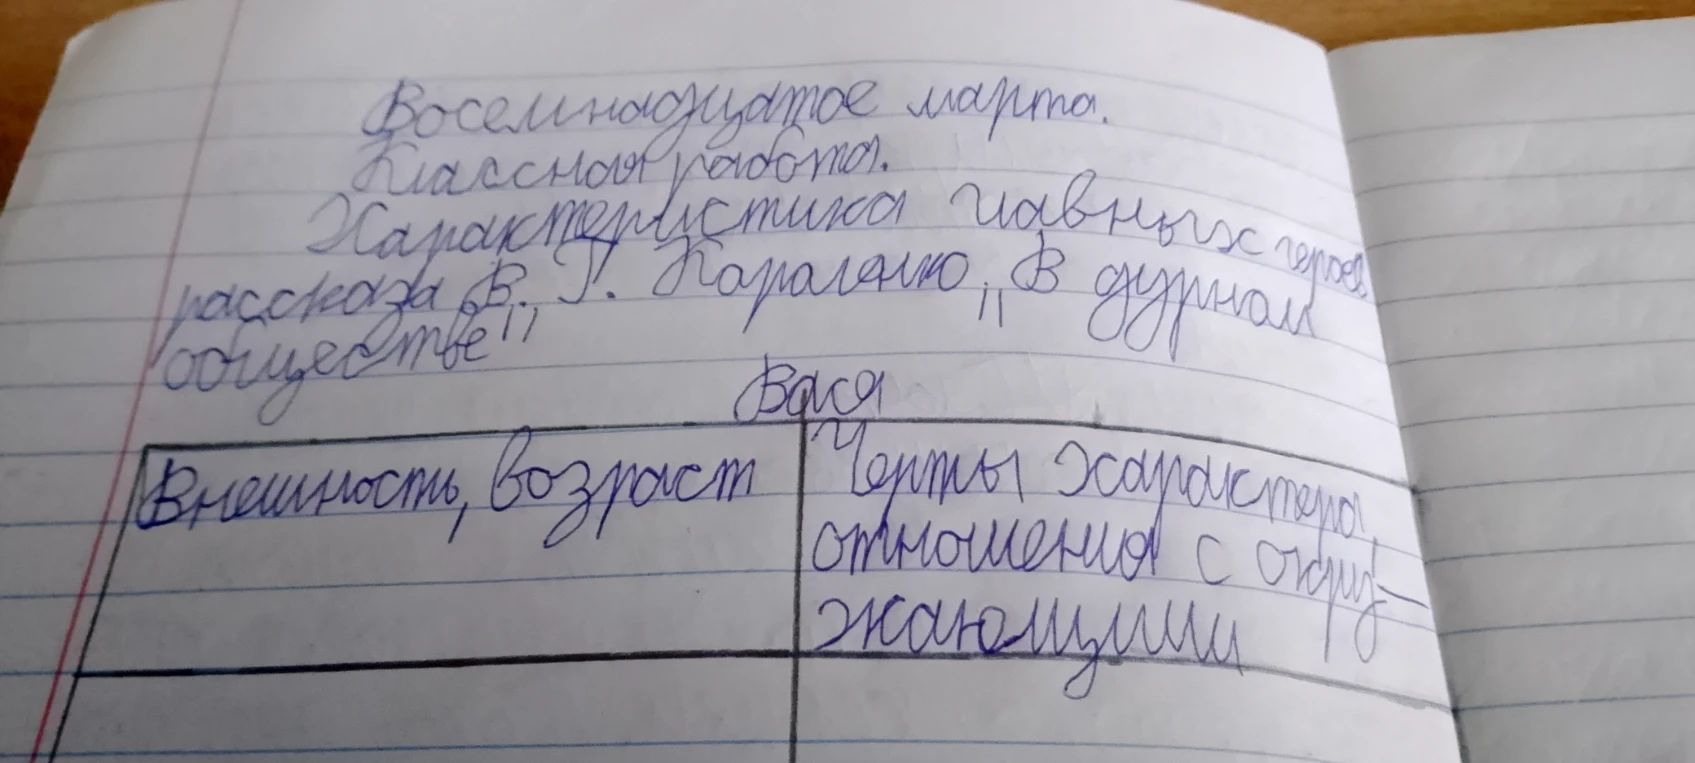 Восемнадцатое марта.
Классная работа.
Характеристика главных героев
рассказа В. Г. Караленко „В дурном
обществе"
Вася
Внешность, возраст
Черты характера,
отношения с окру-
жающими